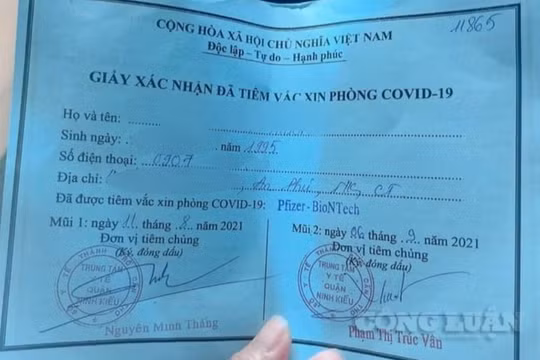 11865
CỘNG HÒA XÃ HỘI CHỦ NGHĨA VIỆT NAM
Độc lập – Tự do – Hạnh phúc
GIẤY XÁC NHẬN ĐÃ TIÊM VẮC XIN PHÒNG COVID-19
Họ và tên:
Sinh ngày: năm 1995
Số điện thoại: 0907
Địa chỉ: An Phú, NK, CT
Đã được tiêm vắc xin phòng COVID-19: Pfizer - BioNTech
Mũi 1: ngày 11 tháng 8 /2021
Đơn vị tiêm chủng
(Ký, đóng dấu)
TRUNG TÂM
Y TẾ
QUẬN
NINH KIỀU
Nguyễn Minh Thắng
Mũi 2: ngày 06 tháng 9 /2021
Đơn vị tiêm chủng
(Ký, đóng dấu)
TRUNG TÂM
Y TẾ
QUẬN
NINH KIỀU
Phạm Thị Trúc Vân
CÔNG LUẬN